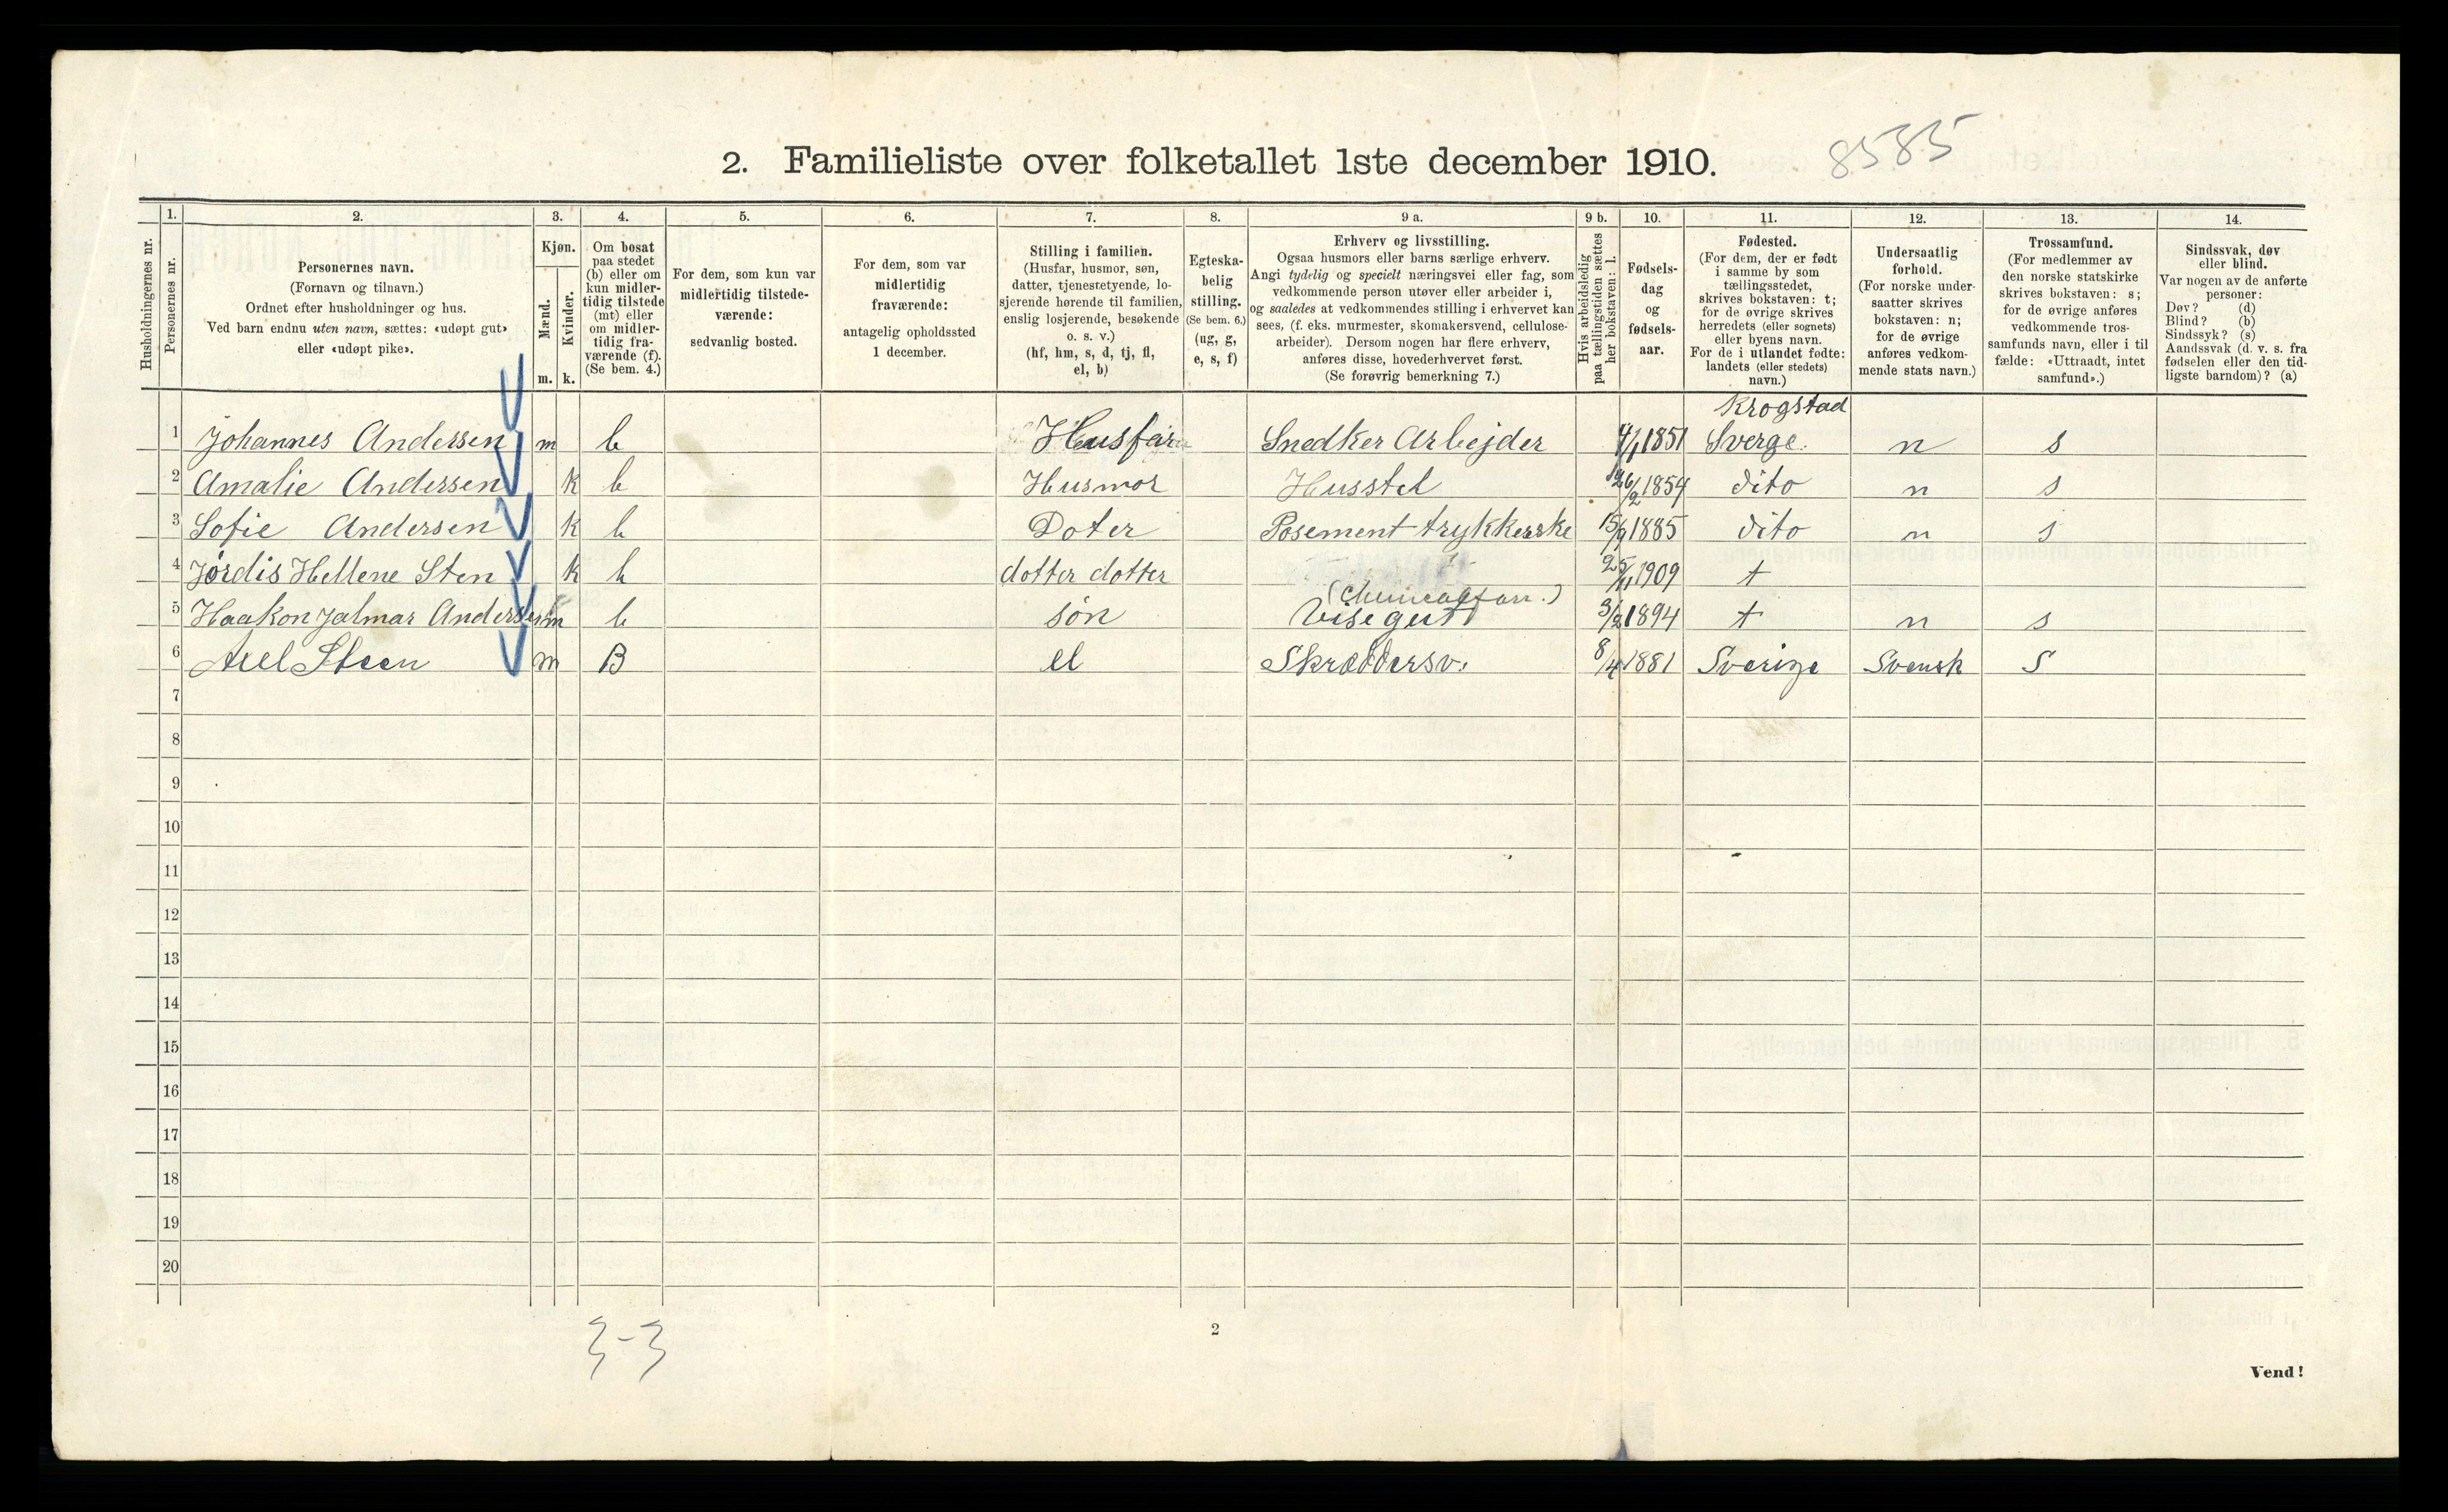 2. Familieliste over folketallet 1ste december 1910. 8585
Husholdningernes nr.
1. Personernes nr.
2. Personernes navn.
(Fornavn og tilnavn.)
Ordnet efter husholdninger og hus.
Ved barn endnu uten navn, sættes: «udøpt gut»
eller «udøpt pike».
3. Kjøn.
Mænd. Kvinder.
m. k.
4. Om bosat
paa stedet
(b) eller om
kun midler-
tidig tilstede
(mt) eller
om midler-
tidig fra-
værende (f).
(Se bem. 4.)
5. For dem, som kun var
midlertidig tilstede-
værende:
sedvanlig bosted.
6. For dem, som var
midlertidig
fraværende:
antagelig opholdssted
1 december.
7. Stilling i familien.
(Husfar, husmor, søn,
datter, tjenestetyende, lo-
sjerende hørende til familien,
enslig losjerende, besøkende
o. s. v.)
(hf, hm, s, d, tj, fl,
el, b)
8. Egteska-
belig
stilling.
(Se bem. 6.)
(ug, g,
e, s, f)
9 a. Erhverv og livsstilling.
Ogsaa husmors eller barns særlige erhverv.
Angi tydelig og specielt næringsvei eller fag, som
vedkommende person utøver eller arbeider i,
og saaledes at vedkommendes stilling i erhvervet kan
sees, (f. eks. murmester, skomakersvend, cellulose-
arbeider). Dersom nogen har flere erhverv,
anføres disse, hovederhvervet først.
(Se forøvrig bemerkning 7.)
9 b. Hvis arbeidsledig
paa tællingstiden sættes
her bokstaven: l.
10. Fødsels-
dag
og
fødsels-
aar.
11. Fødested.
(For dem, der er født
i samme by som
tællingsstedet,
skrives bokstaven: t;
for de øvrige skrives
herredets (eller sognets)
eller byens navn.
For de i utlandet fødte:
landets (eller stedets)
navn.)
12. Undersaatlig
forhold.
(For norske under-
saatter skrives
bokstaven: n;
for de øvrige
anføres vedkom-
mende stats navn.)
13. Trossamfund.
(For medlemmer av
den norske statskirke
skrives bokstaven: s;
for de øvrige anføres
vedkommende tros-
samfunds navn, eller i til
fælde: «Uttraadt, intet
samfund».)
14. Sindssvak, døv
eller blind.
Var nogen av de anførte
personer:
Døv? (d)
Blind? (b)
Sindssyk? (s)
Aandssvak (d. v. s. fra
fødselen eller den tid-
ligste barndom)? (a)
Krogstad
1 Johannes Andersen m b Husfar Snedker Arbejder 4/1 1851 Sverge. n s
2 Amalie Andersen k b Husmor Husstel 1854 dito n s
3 Sofie Andersen k b Doter Posement trykkerske 15/9 1885 dito n s
4 Jørdis Hellene Sten k b dotter dotter 25/11 1909 t
5 Haakon Jalmar Andersen m b søn Visegut 3/2 1894 t n s
6 Axel Steen m B el Skræddersv. 8/4 1881 Sverige Svensk S
7
8
9
10
11
12
13
14
15
16
17
18
19
20
3-3
2
Vend!